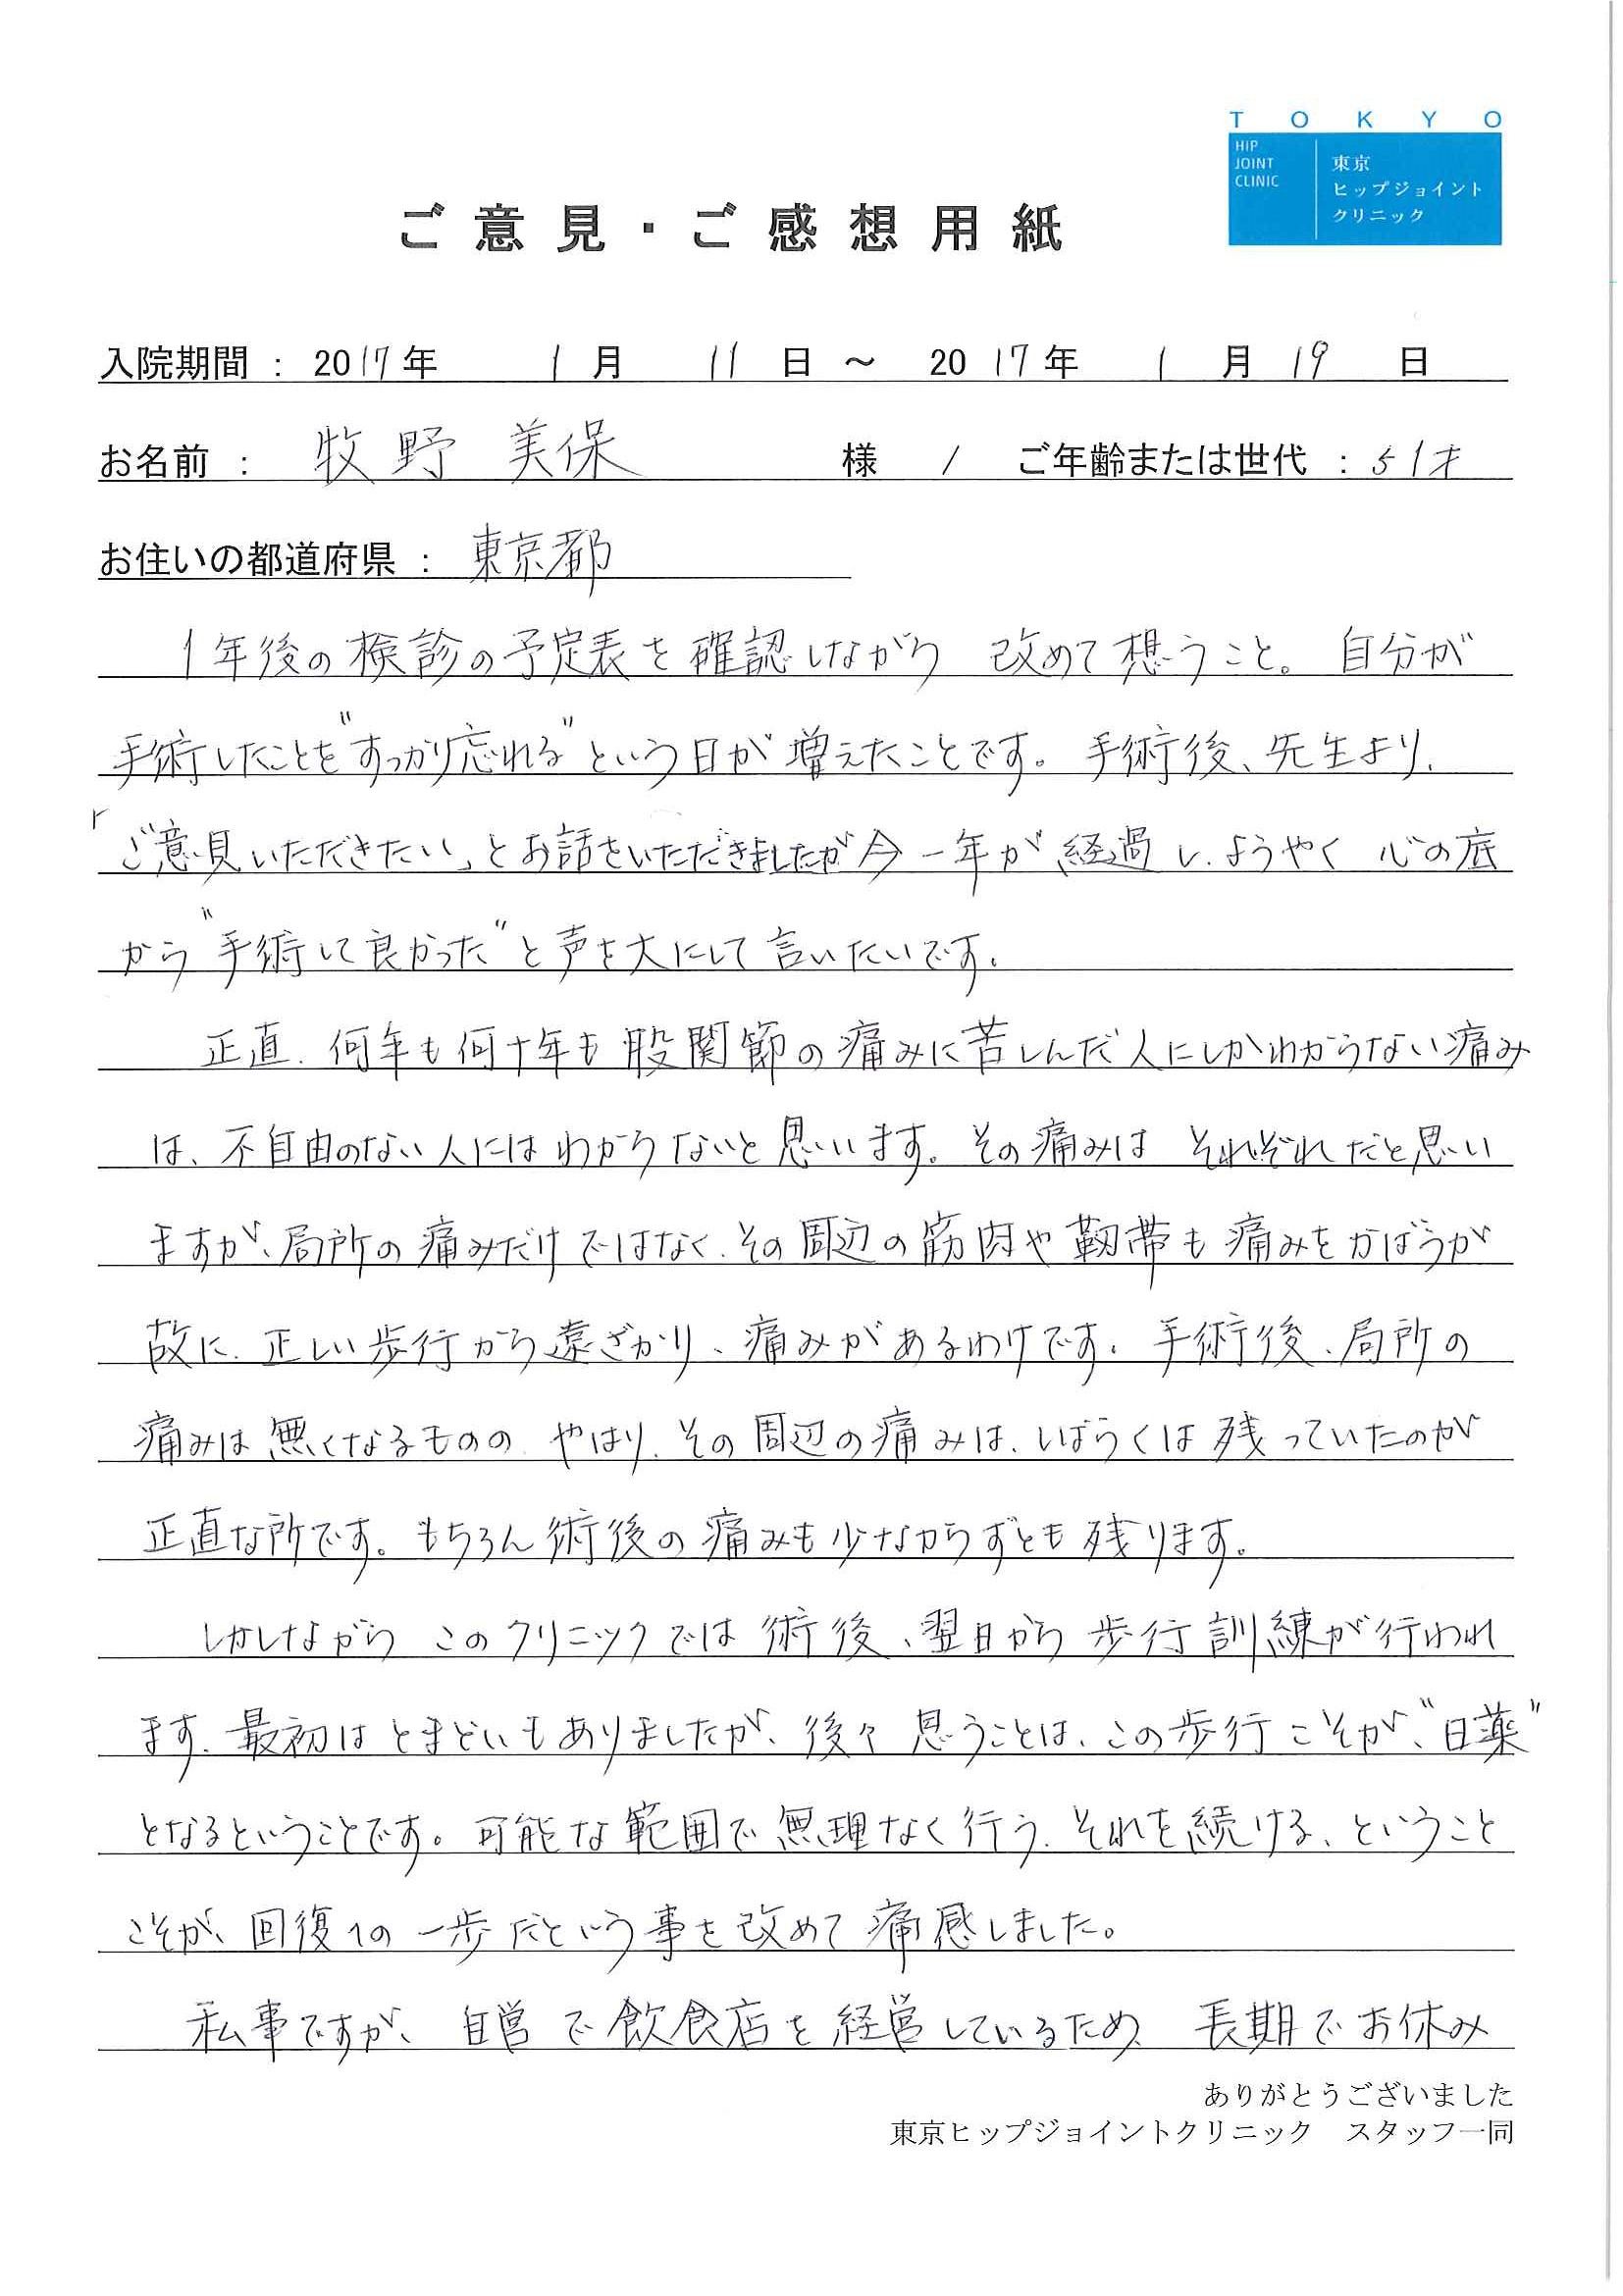 TOKYO
HIP
JOINT
CLINIC
東京
ヒップジョイント
クリニック
ご意見・ご感想用紙
入院期間 : 2017年 1月 11日 ～ 2017年 1月 19日
お名前 : 牧野 美保 様 / ご年齢または世代 : 51才
お住いの都道府県 : 東京都
1年後の検診の予定表を確認しながら 改めて想うこと。自分が
手術したことを"すっかり忘れる"という日が増えたことです。手術後、先生より、
「ご意見いただきたい」とお話をいただきましたが今一年が経過し、ようやく心の底
から"手術して良かった"と声を大にして言いたいです。
正直、何年も何十年も股関節の痛みに苦しんだ人にしかわからない痛み
は、不自由のない人にはわからないと思います。その痛みは それぞれだと思い
ますが、局所の痛みだけではなく、その周辺の筋肉や靭帯も痛みをかばうが
故に、正しい歩行から遠ざかり、痛みがあるわけです。手術後、局所の
痛みは無くなるものの、やはり、その周辺の痛みは、しばらくは残っていたのが
正直な所です。もちろん術後の痛みも少なからずとも残ります。
しかしながら このクリニックでは術後、翌日から歩行訓練が行われ
ます。最初はとまどいもありましたが、後々思うことは、この歩行こそが、"日薬"
となるということです。可能な範囲で無理なく行う、それを続ける、ということ
こそが、回復への一歩だという事を改めて痛感しました。
私事ですが、自営で飲食店を経営しているため、長期でお休み
ありがとうございました
東京ヒップジョイントクリニック スタッフ一同